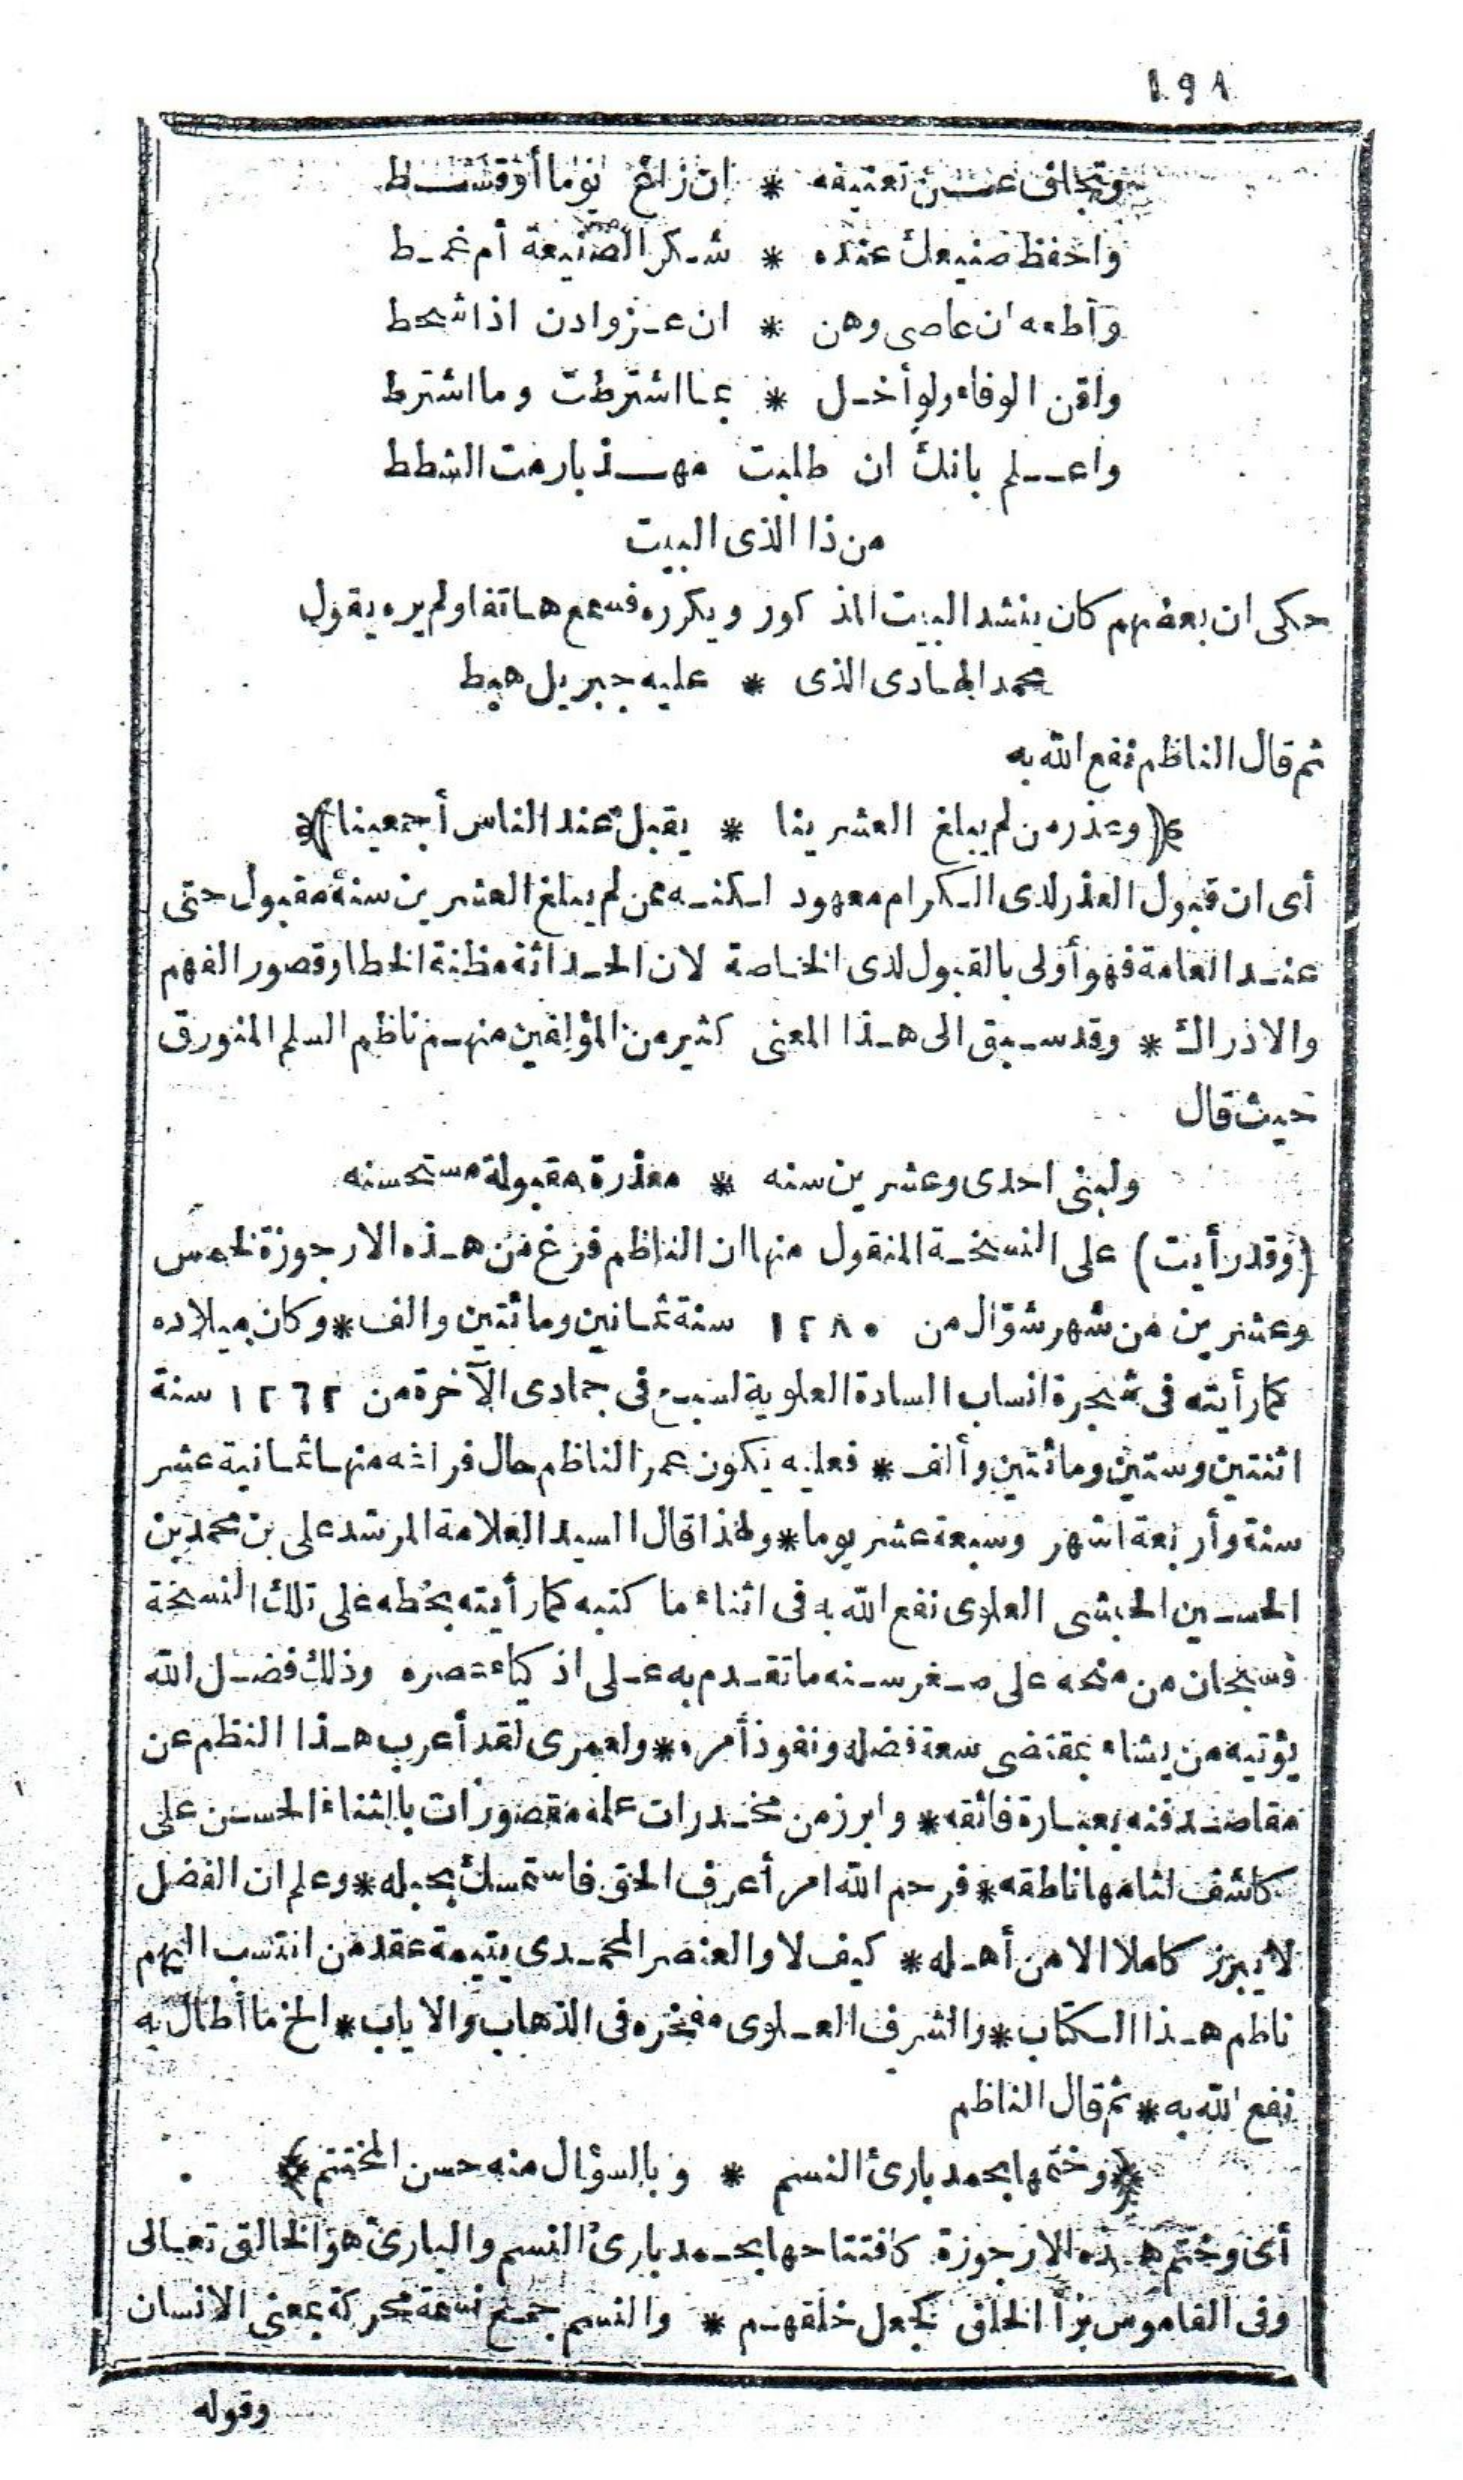 ١٩٨
وتجاف عن تعنيفه * ان زاغ يوما أو قسط
واحفظ صنيعك عنده * شكر الصنيعة أم غمط
وأطعه ان عاصى وهن * ان عز وادن اذا شحط
واقن الوفاء ولو أخل * بما اشترطت وما اشترط
واعلم بانك ان طلبت مهذبا رمت الشطط
من ذا الذى البيت
حكى ان بعضهم كان ينشد البيت المذكور ويكرره فسمع هاتفا ولم يره يقول
محمد الهادى الذى * عليه جبريل هبط
ثم قال الناظم نفع الله به
﴿وعذر من لم يبلغ العشرينا * يقبل عند الناس أجمعينا﴾
أى ان قبول العذر لدى الكرام معهود لكنه ممن لم يبلغ العشرين سنة مقبول حتى
عند العامة فهو أولى بالقبول لدى الخاصة لان الحداثة مظنة الخطا وقصور الفهم
والادراك * وقد سبق الى هذا المعنى كثير من المؤلفين منهم ناظم السلم المنورق
حيث قال
ولبنى احدى وعشرين سنه * معذرة مقبولة مستحسنه
(وقد رأيت) على النسخة المنقول منها ان الناظم فرغ من هذه الارجوزة لخمس
وعشرين من شهر شوّال من ١٢٨٠ سنة ثمانين ومائتين والف * وكان ميلاده
كما رأيته فى شجرة انساب السادة العلوية لسبع فى جمادى الآخرة من ١٢٦٢ سنة
اثنتين وستين ومائتين وألف * فعليه يكون عمر الناظم حال فراغه منها ثمانية عشر
سنة وأربعة اشهر وسبعة عشر يوما * ولهذا قال السيد العلامة المرشد على بن محمد بن
الحسين الحبشى العلوى نفع الله به فى اثناء ما كتبه كما رأيته بخطه على تلك النسخة
فسبحان من منحه على صغر سنه ما تقدم به على اذكياء عصره وذلك فضل الله
يؤتيه من يشاء بمقتضى سعة فضله ونفوذ أمره * ولعمرى لقد أعرب هذا النظم عن
مقاصد فنه بعبارة فائقه * وابرز من مخدرات علمه مقصورات بالثناء الحسن على
كاشف لثامها ناطقه * فرحم الله امرأ عرف الحق فاستمسك بحبله * وعلم ان الفضل
لا يبرز كاملا الا من أهله * كيف لا والعنصر المحمدى يتيمة عقد من انتسب اليهم
ناظم هذا الكتاب * والشرف العلوى مفخره فى الذهاب والاياب * الخ ما أطال به
نفع الله به * ثم قال الناظم
﴿وختمها بحمد بارئ النسم * وبالسؤال منه حسن المختتم﴾
أى وختم هذه الارجوزة كافتتاحها بحمد بارئ النسم والبارئ هو الخالق تعالى
وفى القاموس برأ الخلق كجعل خلقهم * والنسم جمع نسمة محركة بمعنى الانسان
وقوله